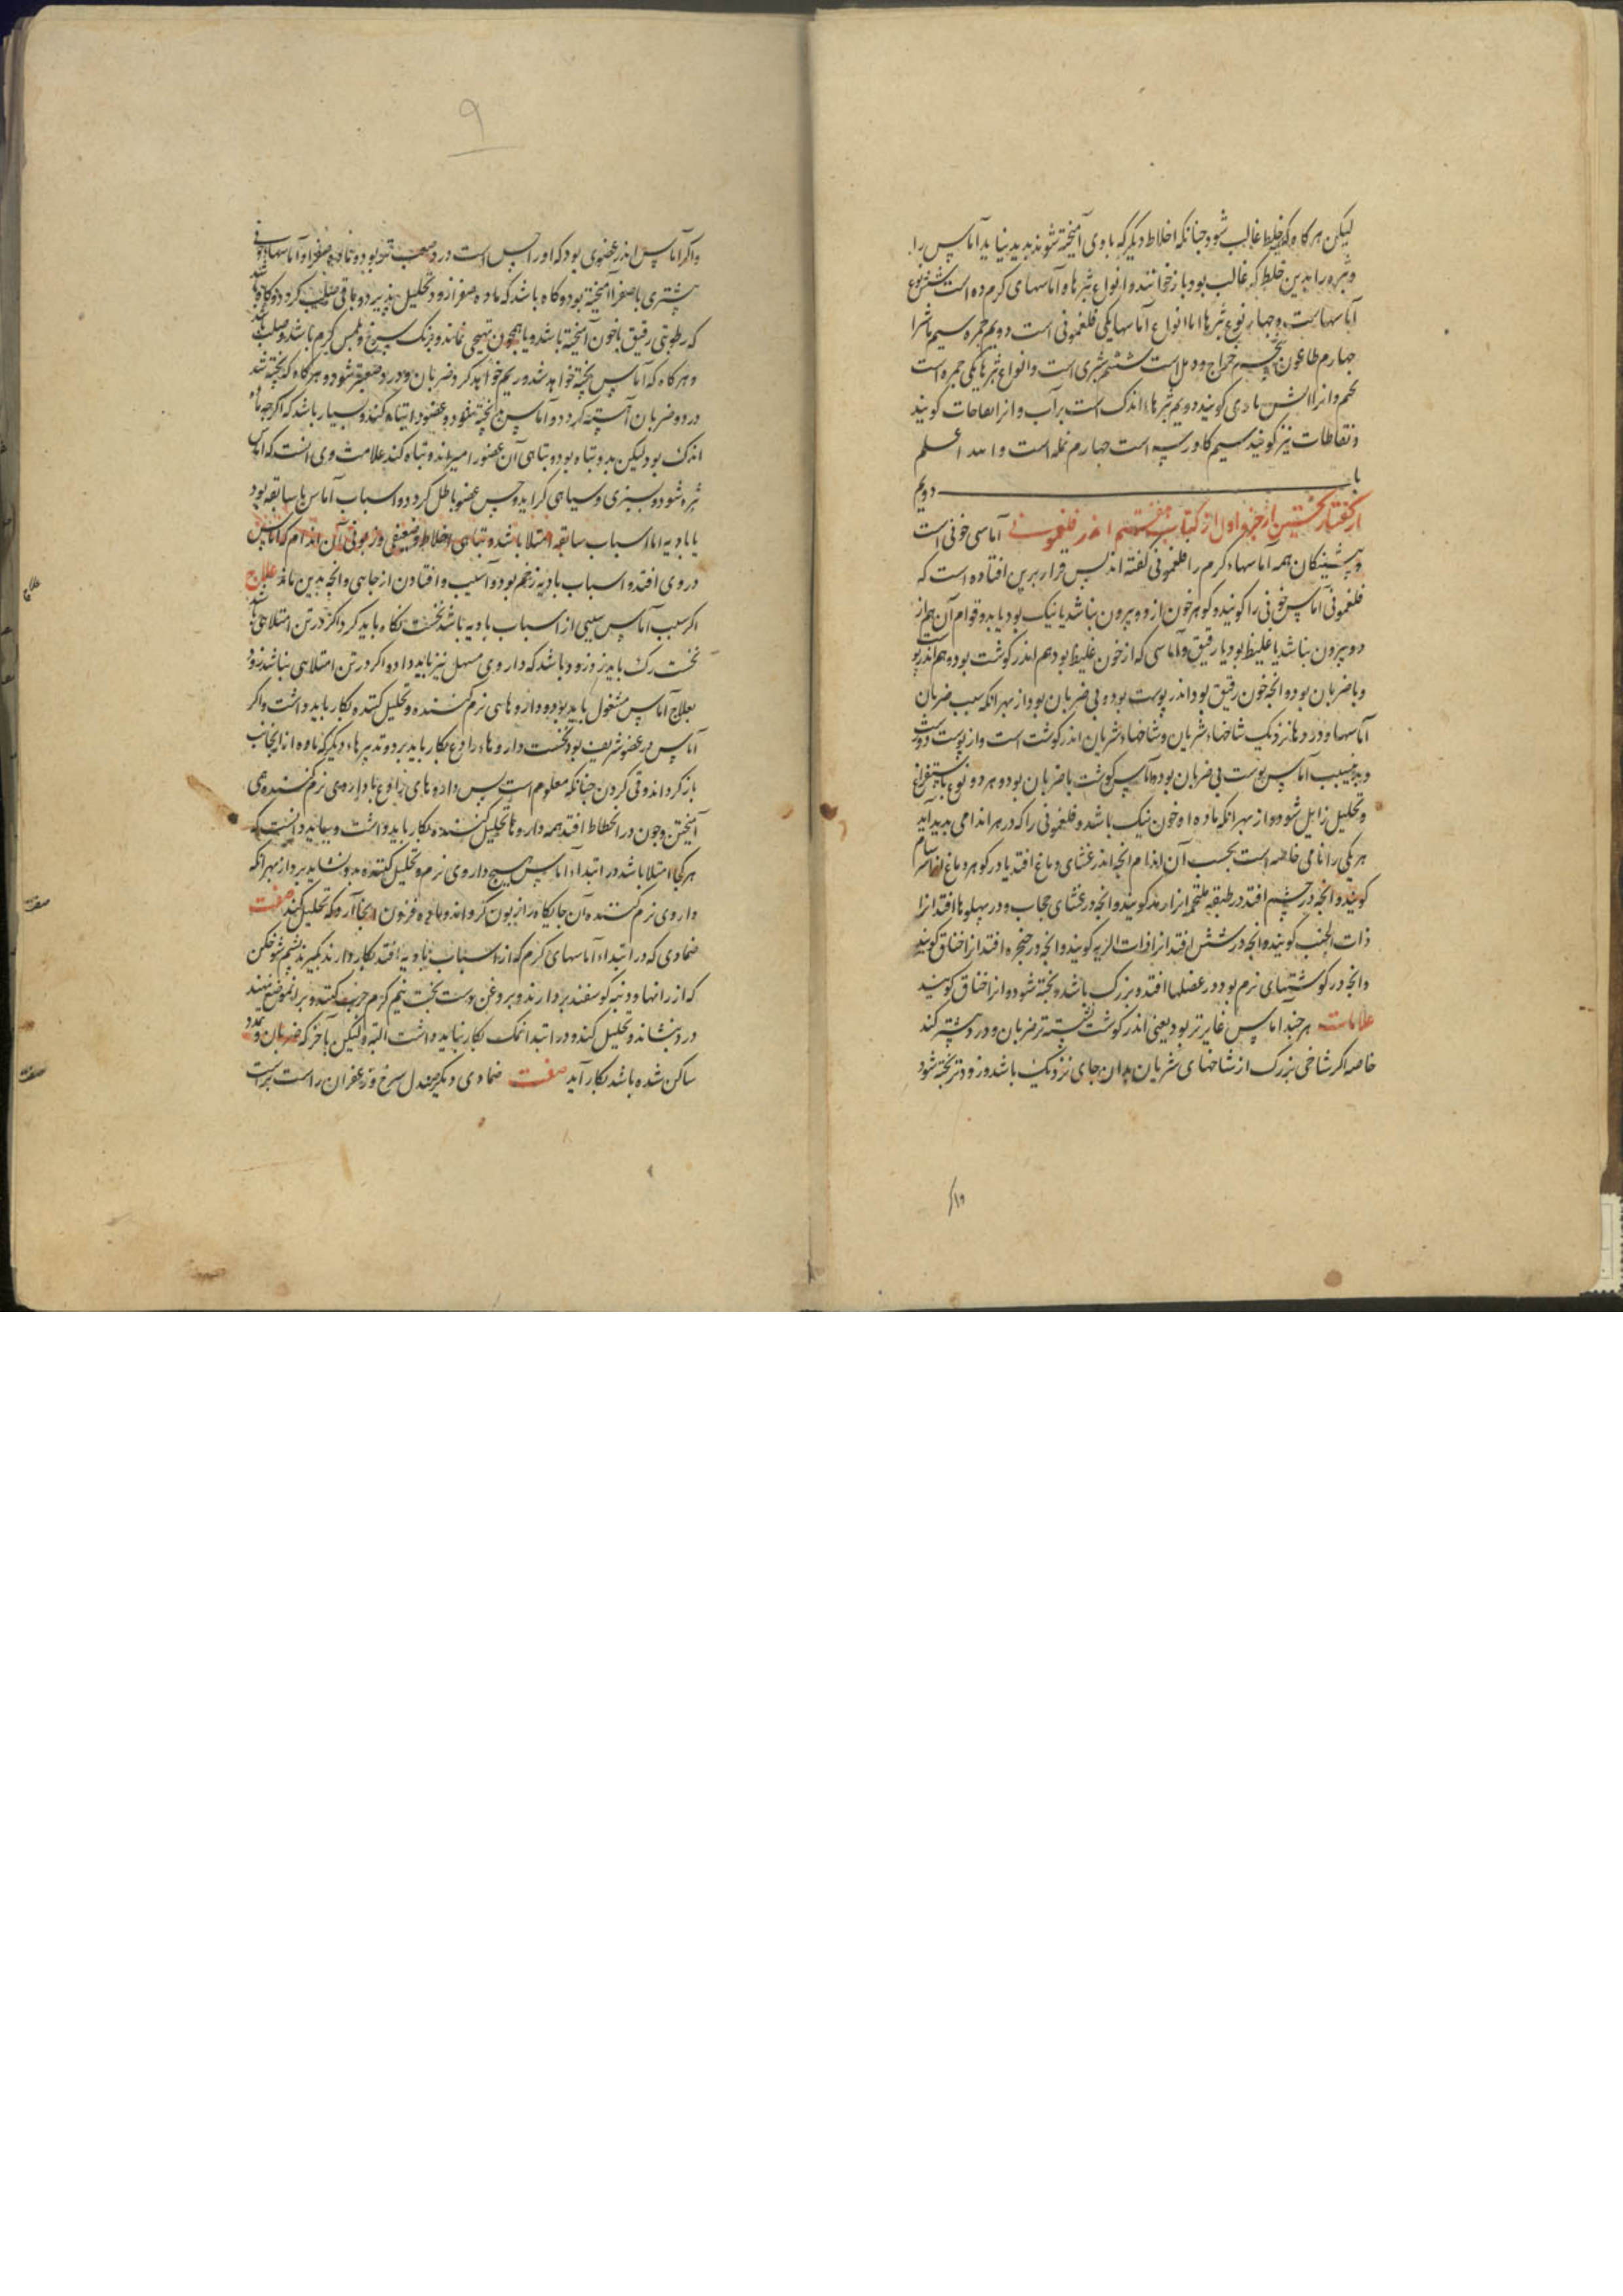 لیکن هر کاه که خلط غالب شود جنانکه اخلاط دیگر که با وی آمیخته شوند بدید نیاید آماس را
و بثره را بدین خلط که غالب بود باز خوانند و انواع بثرها و آماسهای کرم ده است شش نوع
آماسهاست و جهار نوع بثرها اما انواع آماسها یکی فلغمونی است دویم حمره سیم ماشرا
جهارم طاعون پنجم خراج و دمل است ششم شری است و انواع بثرها یکی جمره است
دویم بثرها اندک است برآب و انرا نفاخات کویند
و نفاطات نیز کویند سیم کاورسه است جهارم نمله است و الله اعلم
باب دویم
از کفتار نخستین از جزو اول از کتاب هفتم اندر فلغمونی آماسی خونی است
و پیشینکان همه آماسهاء کرم را فلغمونی کفته اند پس قرار برین افتاده است که
فلغمونی آماس خونی را کویند و کوهر خون از دو بیرون نباشد یا نیک بود یا بد و قوام آن هم از
دو بیرون نباشد یا غلیظ بود یا رقیق و آماسی که از خون غلیظ بود هم اندر کوشت بود و هم اندر پوست
و با ضربان بود و انجه خون رقیق بود اندر پوست بود و بی ضربان بود از بهر انکه سبب ضربان
آماسها و دردها نزدیک شاخهاء شریان و شاخهاء شریان اندر کوشت است و از پوست دور است
و بدین سبب آماس پوست بی ضربان بود و آماس کوشت با ضربان بود و هر دو نوع باستفراغ
و تحلیل زایل شود و از بهر انکه ماده او خون نیک باشد و فلغمونی را که در هر اندامی بدید آید
هر یکی را نامی خاصه است بحسب آن اندام انجه اندر غشای دماغ افتد یا در کوهر دماغ انرا سرسام
کویند و انجه در چشم افتد در طبقه ملتحمه انرا رمد کویند و انجه در غشای حجاب و در پهلوها افتد انرا
ذات الجنب کویند و انجه در شش افتد انرا ذات الریه کویند و انجه در حنجره افتد انرا خناق کویند
و انجه در کوشتهای نرم بود و در عضلها افتد و بزرک باشد و پخته شود و انرا خناق کویند
علامات هر جند آماس غایرتر بود یعنی اندر کوشت نشسته تر ضربان و درد بیشتر کند
خاصه اکر شاخی بزرک از شاخهای شریان بدان جای نزدیک باشد و زودتر پخته شود
۹
و اکر آماس اندر عضوی بود که او را حس است درد صعب تر بود
بیشتری با صفرا آمیخته بود و کاه باشد که ماده صفرا زود تحلیل پذیرد و باقی صلب کردد
که رطوبتی رقیق با خون آمیخته باشد و برنک سرخ و بلمس کرم باشد
و هر کاه که آماس پخته خواهد شد و ریم خواهد کرد ضربان و درد صعبتر شود و هر کاه که پخته شد
درد و ضربان آهسته کردد و آماس پخته شود و عضو را تباه کند و بسیار باشد که اکرچه ماده
اندک بود لیکن بد و تباه بود و تباهی آن عضو را بمیراند و تباه کند علامت وی انست که آماس
تیره شود و بسبزی و سیاهی کراید و حس عضو باطل کردد و اسباب آماس یا سابقه بود
یا بادیه اما اسباب سابقه امتلا باشد و تباهی اخلاط و ضعیفی و زبونی آن اندام که آماس
در وی افتد و اسباب بادیه زخم بود و آسیب و افتادن از جاهی و انجه بدین ماند علاج
اکر سبب آماس سببی از اسباب بادیه باشد نخست نکاه باید کرد اکر در تن امتلایی باشد
نخست رک باید زد و زود باشد که داروی مسهل نیز باید داد و اکر در تن امتلایی نباشد زود
بعلاج آماس مشغول باید بود و داروهای نرم کننده و تحلیل کننده بکار باید داشت و اکر
آماس در عضو شریف بود نخست داروهاء رادع بکار باید برد و تدبیرهاء دیکر که ماده از انجانب
باز کرداند و قی کردن جنانکه معلوم است پس داروهای رادع با داروی نرم کننده می
آمیختن و جون در انحطاط افتد همه داروهاء تحلیل کننده بکار باید داشت و بباید دانست که
هر کجا امتلا باشد در ابتداء آماس هیچ داروی نرم و تحلیل کننده نشاید برد از بهر انکه
داروی نرم کننده آن جایکاه را زبون کرداند و ماده فزون انجا آرد که تحلیل کند صفت
ضمادی که در ابتداء آماسهای کرم که از اسباب بادیه افتد بکار دارند بکیرند پشم شوخکن
که از رانها و دنبه کوسفند بردارند و بروغن دست بخت نیم کرم جرب کنند و بر آن موضع نهند
درد بنشاند و تحلیل کند و در ابتدا نمک بکار نباید داشت البته ولیکن باخر که ضربان و تمدد
ساکن شده باشد بکار آید صفت ضمادی دیکر صندل سرخ و زعفران راست براست
علاج
صفت
صفت